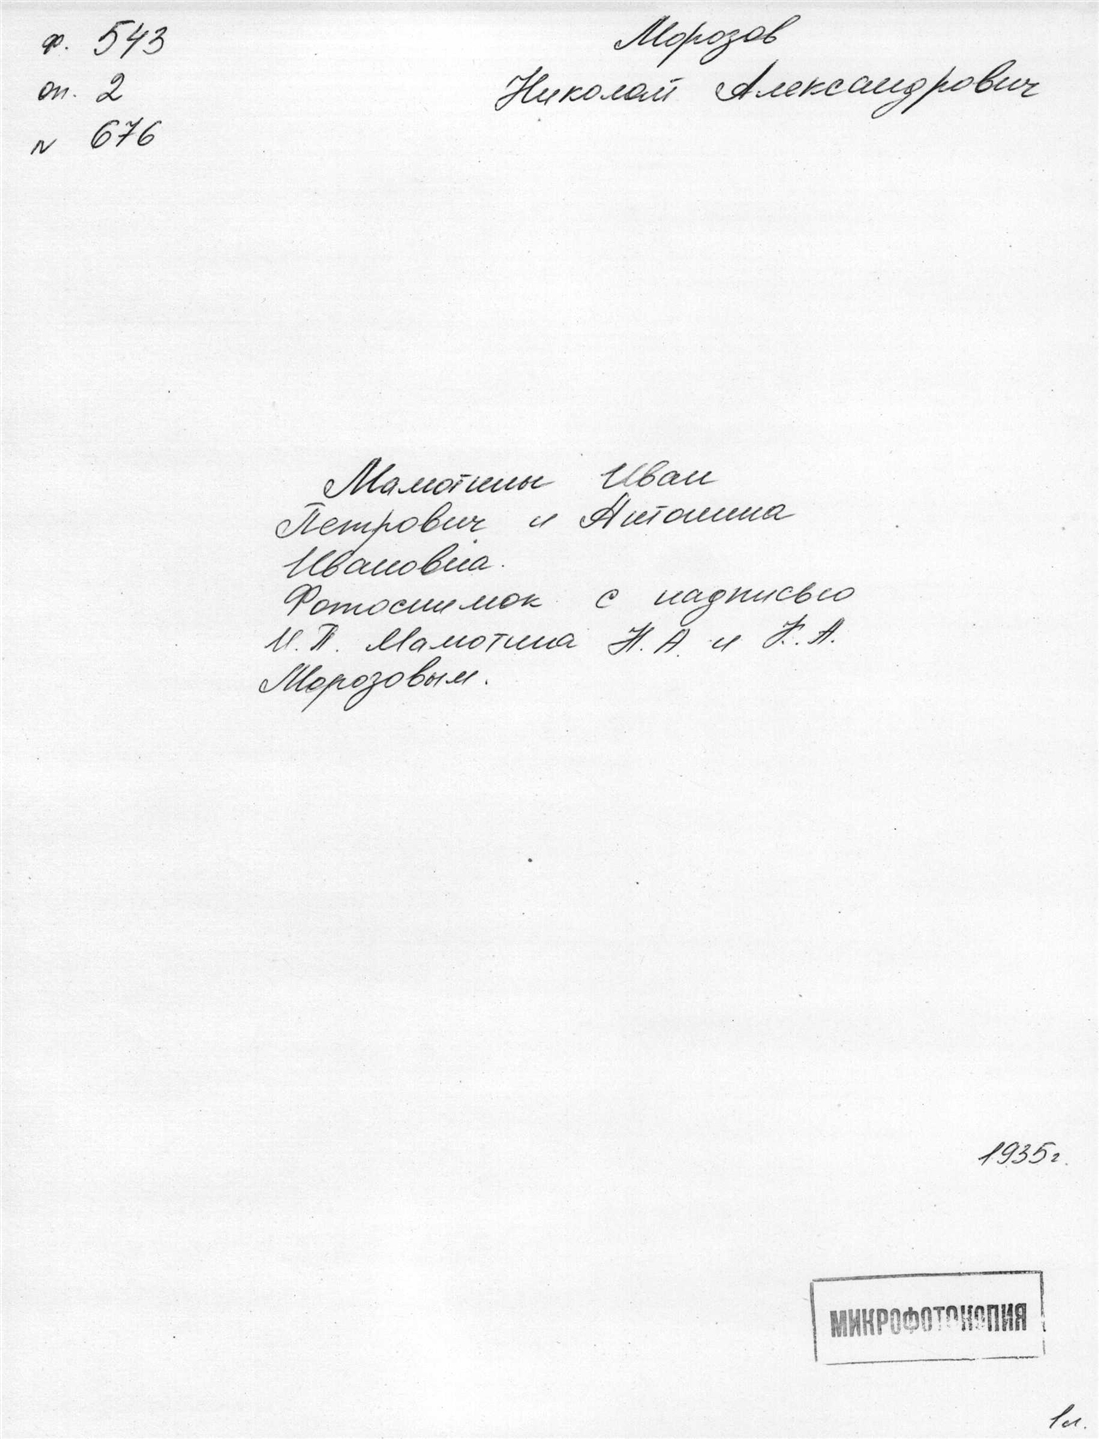 ф. 543
оп. 2
N 676
Морозов
Николай Александрович
Мамотины Иван
Петрович и Антонина
Ивановна.
Фотоснимок с надписью
И. П. Мамотина Н. А. и К. А.
Морозовым.
1935 г.
МИКРОФОТОКОПИЯ
1 л.